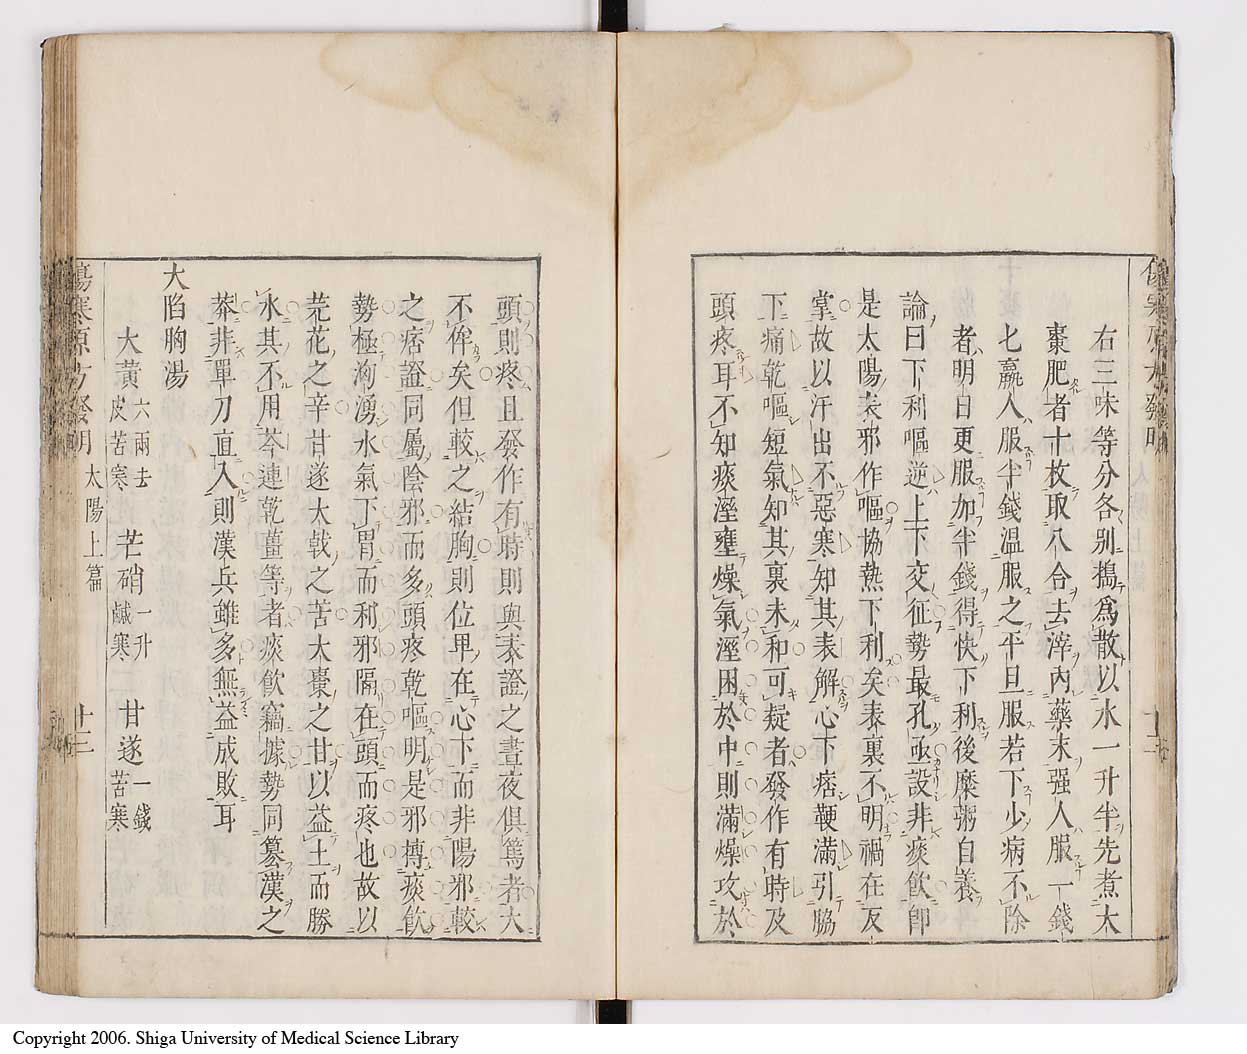 右三味等分各别搗爲散以水一升半先煮大
棗肥者十枚取八合去滓內藥末强人服一錢
七羸人服半錢溫服之平旦服若下少病不除
者明日更服加半錢得快下利後糜粥自養
論曰下利嘔逆上下交征勢最孔亟設非痰飮卽
是太陽表邪作嘔協熱下利矣表裏不明禍在反
掌故以汗出不惡寒知其表解心下痞鞕滿引脇
下痛乾嘔短氣知其裏未和可疑者發作有時及
頭疼耳不知痰溼壅燥氣溼困於中則滿燥攻於
頭則疼且發作有時則與表證之晝夜俱篤者大
不侔矣但較之結胸則位卑在心下而非陽邪較
之痞證同屬陰邪而多頭疼乾嘔明是邪搏痰飮
勢極洶湧水氣下胃而利邪隔在頭而疼也故以
芫花之辛甘遂大戟之苦大棗之甘以益土而勝
水其不用芩連乾薑等者痰飮竊據勢同簒漢之
莽非單刀直入則漢兵雖多無益成敗耳
大陷胸湯
大黃六兩去皮苦寒 芒硝一升鹹寒 甘遂一錢苦寒
傷寒原方發明 太陽上篇 十三
Copyright 2006. Shiga University of Medical Science Library